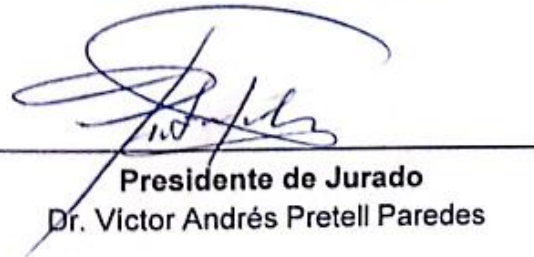 Presidente de Jurado
Dr. Víctor Andrés Pretell Paredes